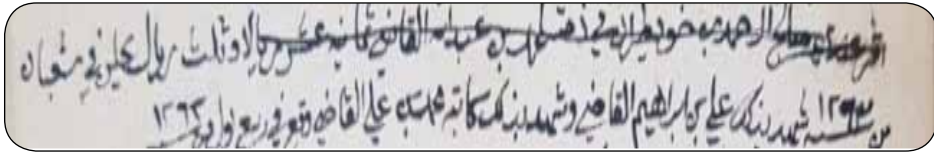 اقر عندي صالح الحمد بن خويطر بان في ذمته لمحمد بن عبدالله القاضي ثمانية عشر ريالا وثلث ريال يحلن في شعبان
من سنة ١٢٩٣ شهد بذلك علي بن ابراهيم القاضي وشهد بذلك كاتبه محمد بن علي القاضي وقع في ربيع اول سنة ١٢٩٣